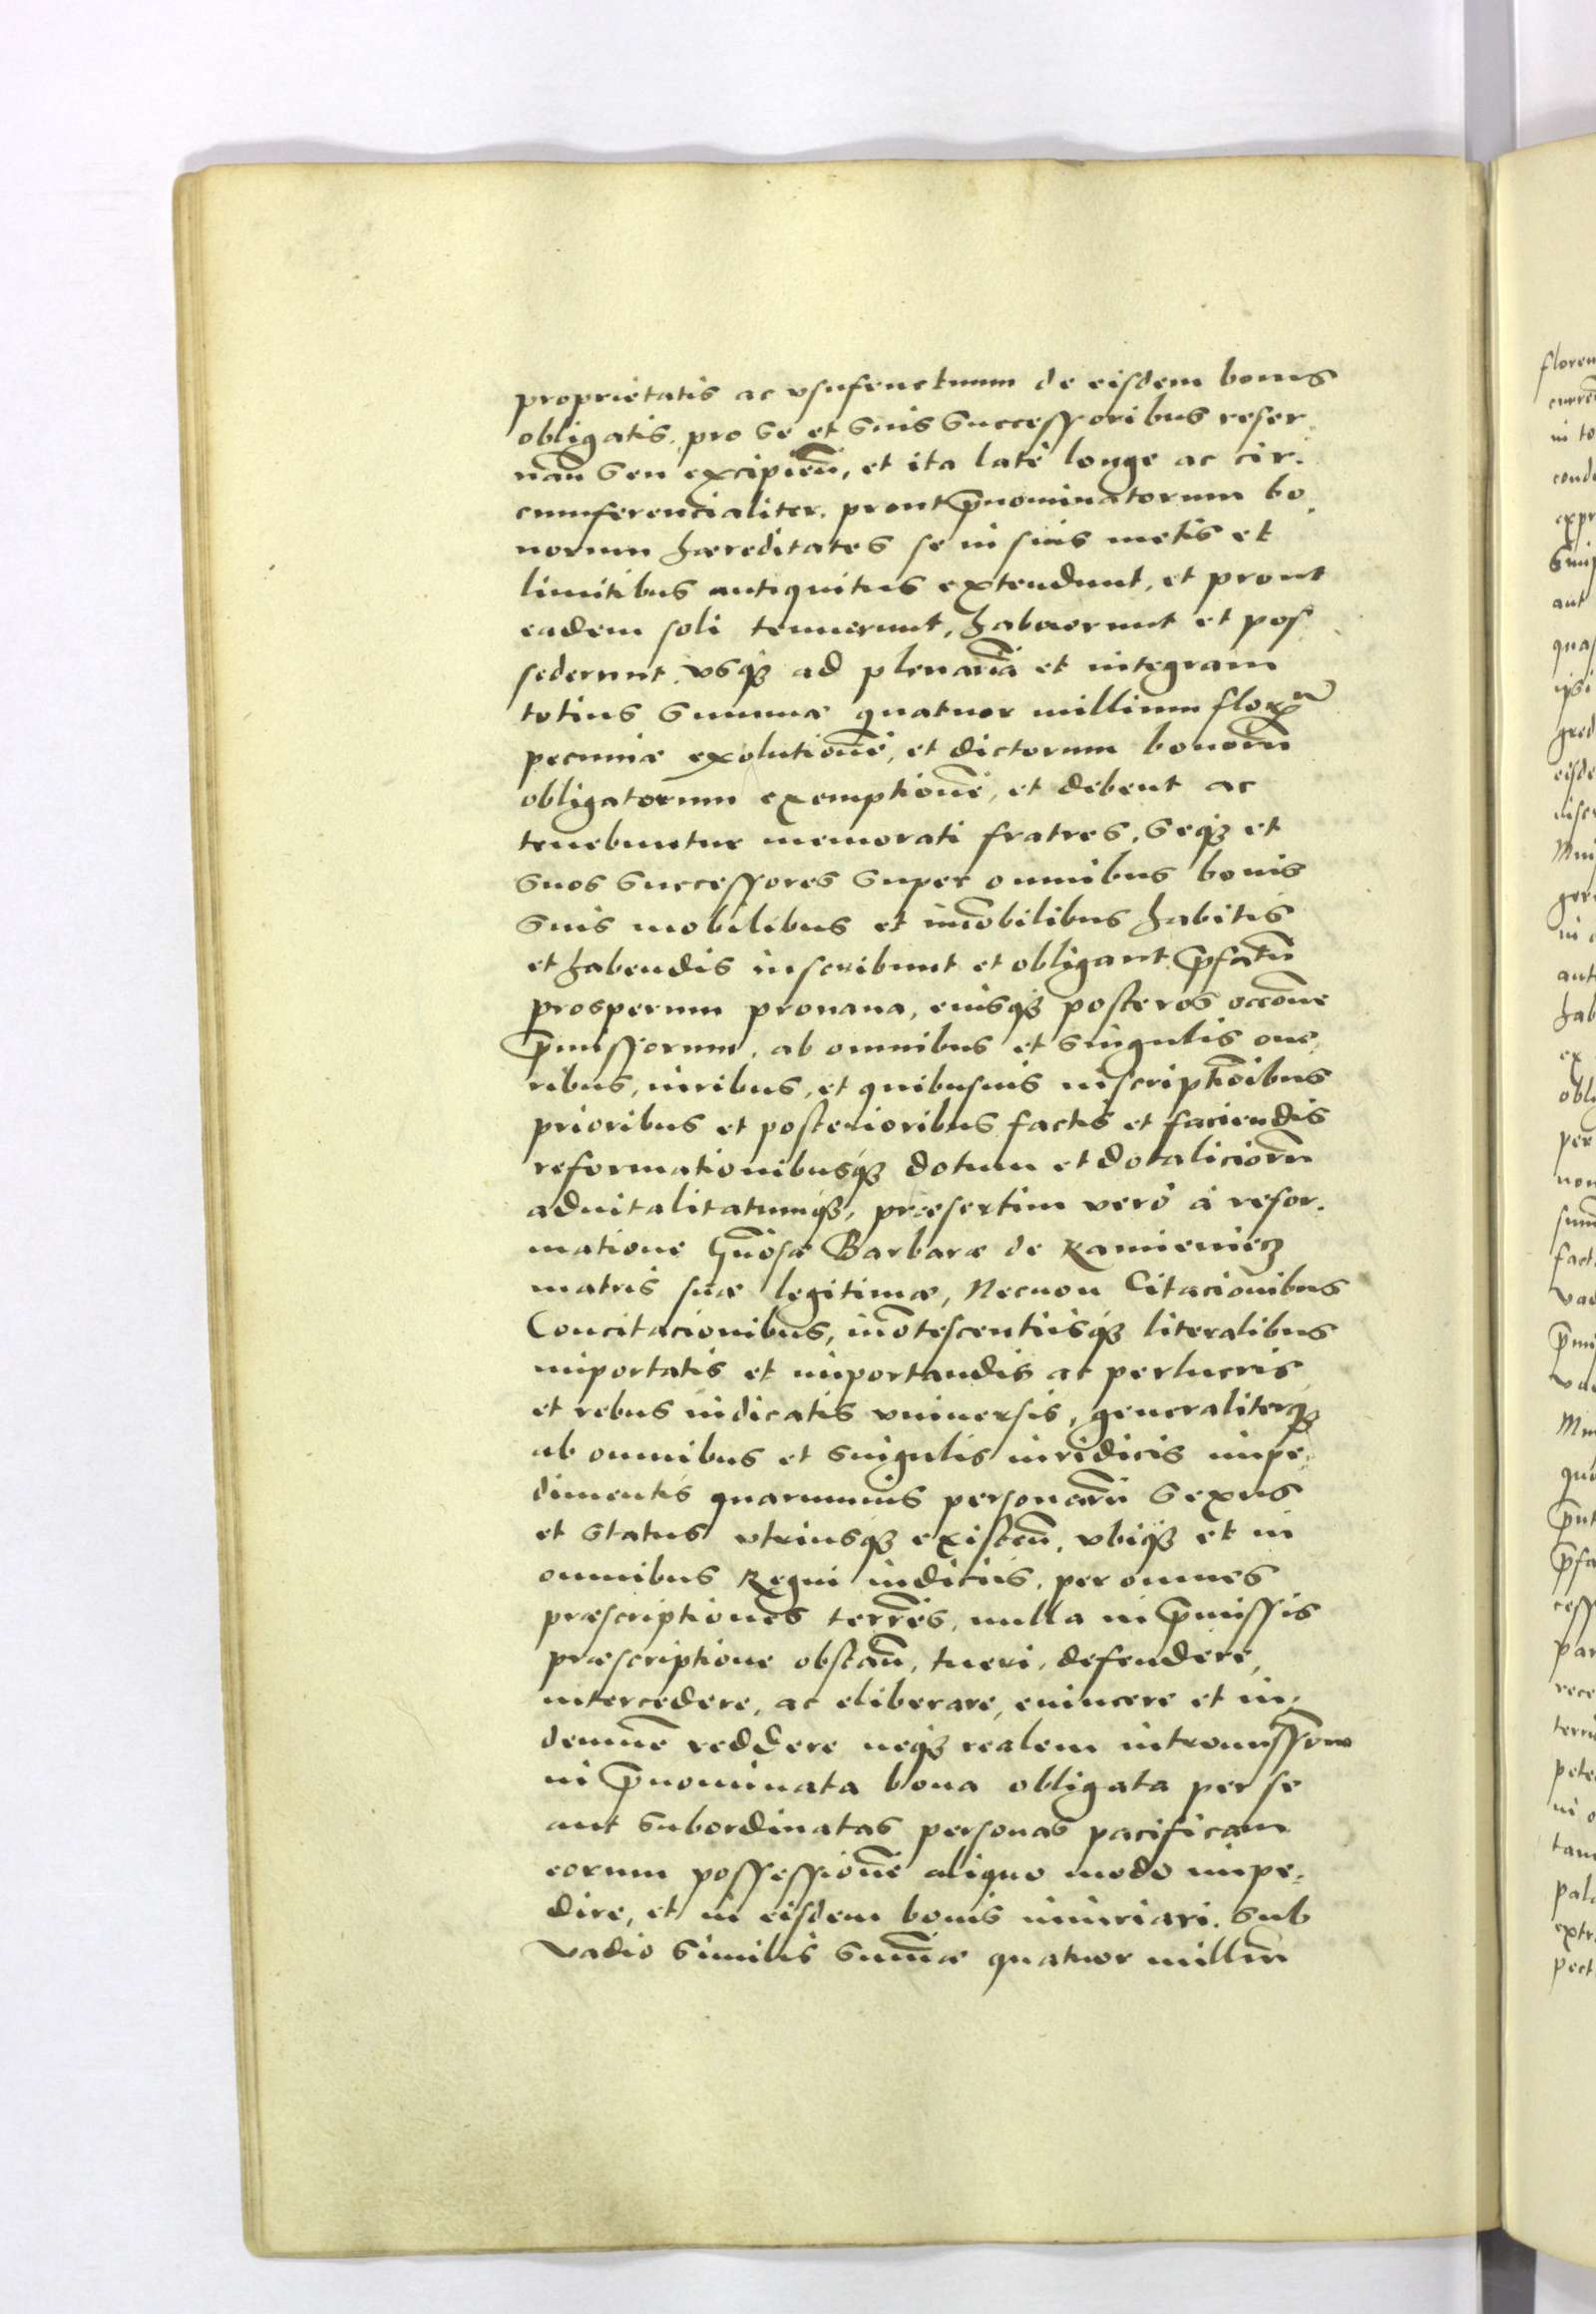 proprietatis ac vsufructuum de eisdem bonis
obligatis, pro se et suis successoribus reser„
uan̄ seu excipien̄, et ita late longe ac cir„
cumferencialiter, prout p̄nominatorum bo„
norum hæreditates se in suis metis et
limitibus antiquitus extendunt, et prout
eadem soli tenuerunt, habuerunt et pos„
sederunt, vsq₃ ad plenariā et integram
totius summæ quatuor millium flor̄
pecuniæ exolutionē, et dictorum bonorū
obligatorum exemptionē, et debent ac
tenebuntur memorati fratres, seq₃ et
suos successores super omnibus bonis
suis mobilibus et im̄obilibus habitis
et habendis inscribunt et obligant p̄fatū
prosperum prouana, eiusq₃ posteros occōne
p̄missorum, ab omnibus et singulis one„
ribus, iuribus, et quibusuis inscriptiōibus
prioribus et posterioribus factis et faciendis
reformationibusq₃ dotum et dotaliciorū
aduitalitatumq₃, præsertim verò à refor„
matione Gn̄osæ Barbaræ de Kamieniecz
matris suæ legitimæ, Necnon Citacionibus
Concitacionibus, in̄otescentiisq₃ literalibus
importatis et importandis ac perlucris
et rebus iudicatis vniuersis, generaliterq₃
ab omnibus et singulis iuridicis impe„
dimentis quarumuis personarū sexus
et status vtriusq₃ existen̄, vbiq₃ et in
omnibus Regni iudiciis, per omnes
præscriptiones terr̄es, nulla in p̄missis
præscriptione obstan̄, tueri, defendere,
intercedere, ac eliberare, euincere et in„
demnē reddere neq₃ realem intromissōnē
in p̄nominata bona obligata per se
aut subordinatas personas pacificam
eorum possessionē aliquo modo impe„
dire, et in eisdem bonis iniuriari, sub
vadio similis summæ quatuor milliū